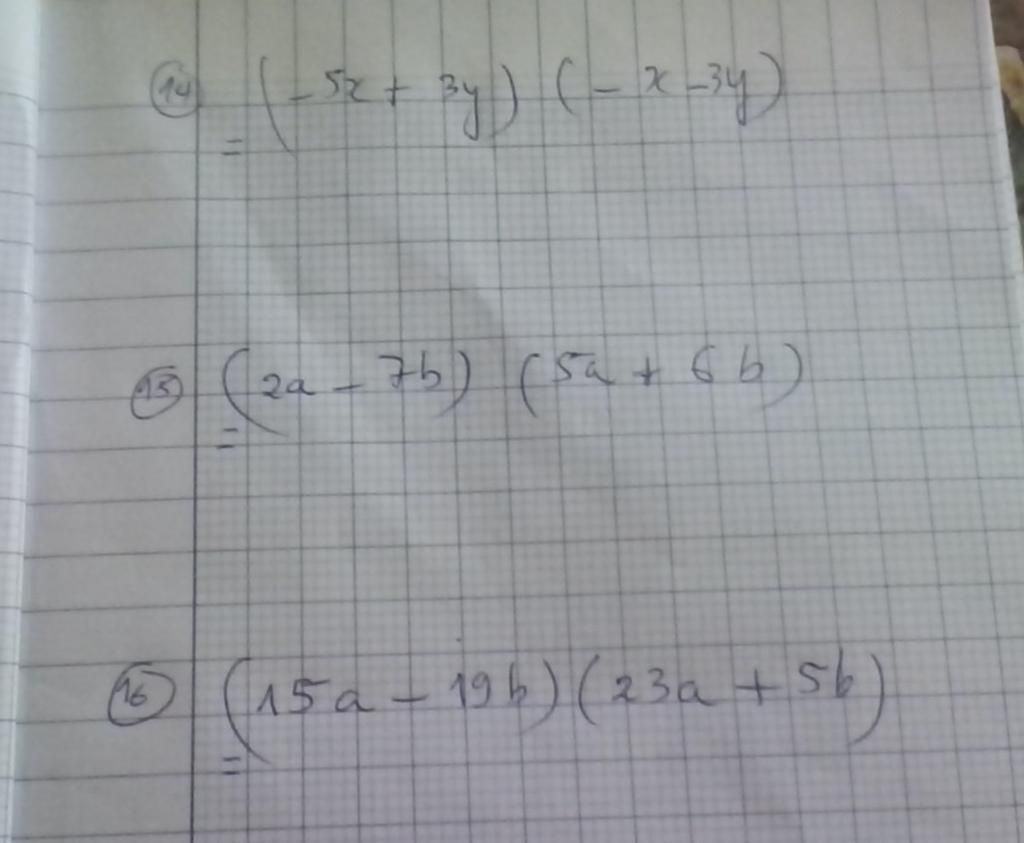 ⑭ (-5x + 3y) (-x-3y)
=
⑮ (2a - 7b) (5a + 6b)
=
⑯ (15a - 19b)(23a + 5b)
=